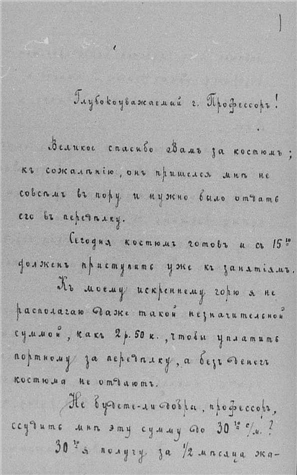 1
Глубокоуважаемый г. Профессоръ!
Великое спасибо Вамъ за костюмъ;
къ сожалѣнію, онъ пришелся мнѣ не
совсѣмъ въ пору и нужно было отдать
его въ передѣлку.
Сегодня костюмъ готовъ и съ 15го
долженъ приступить уже къ занятіямъ.
Къ моему искреннему горю я не
располагаю даже такой незначительной
суммой, какъ 2 р. 50 к., чтобы уплатить
портному за передѣлку, а безъ денегъ
костюма не отдаютъ.
Не будете-ли добры, профессоръ,
ссудить мнѣ эту сумму до 30го с/м.?
30го я получу за 1/2 мѣсяца жа-